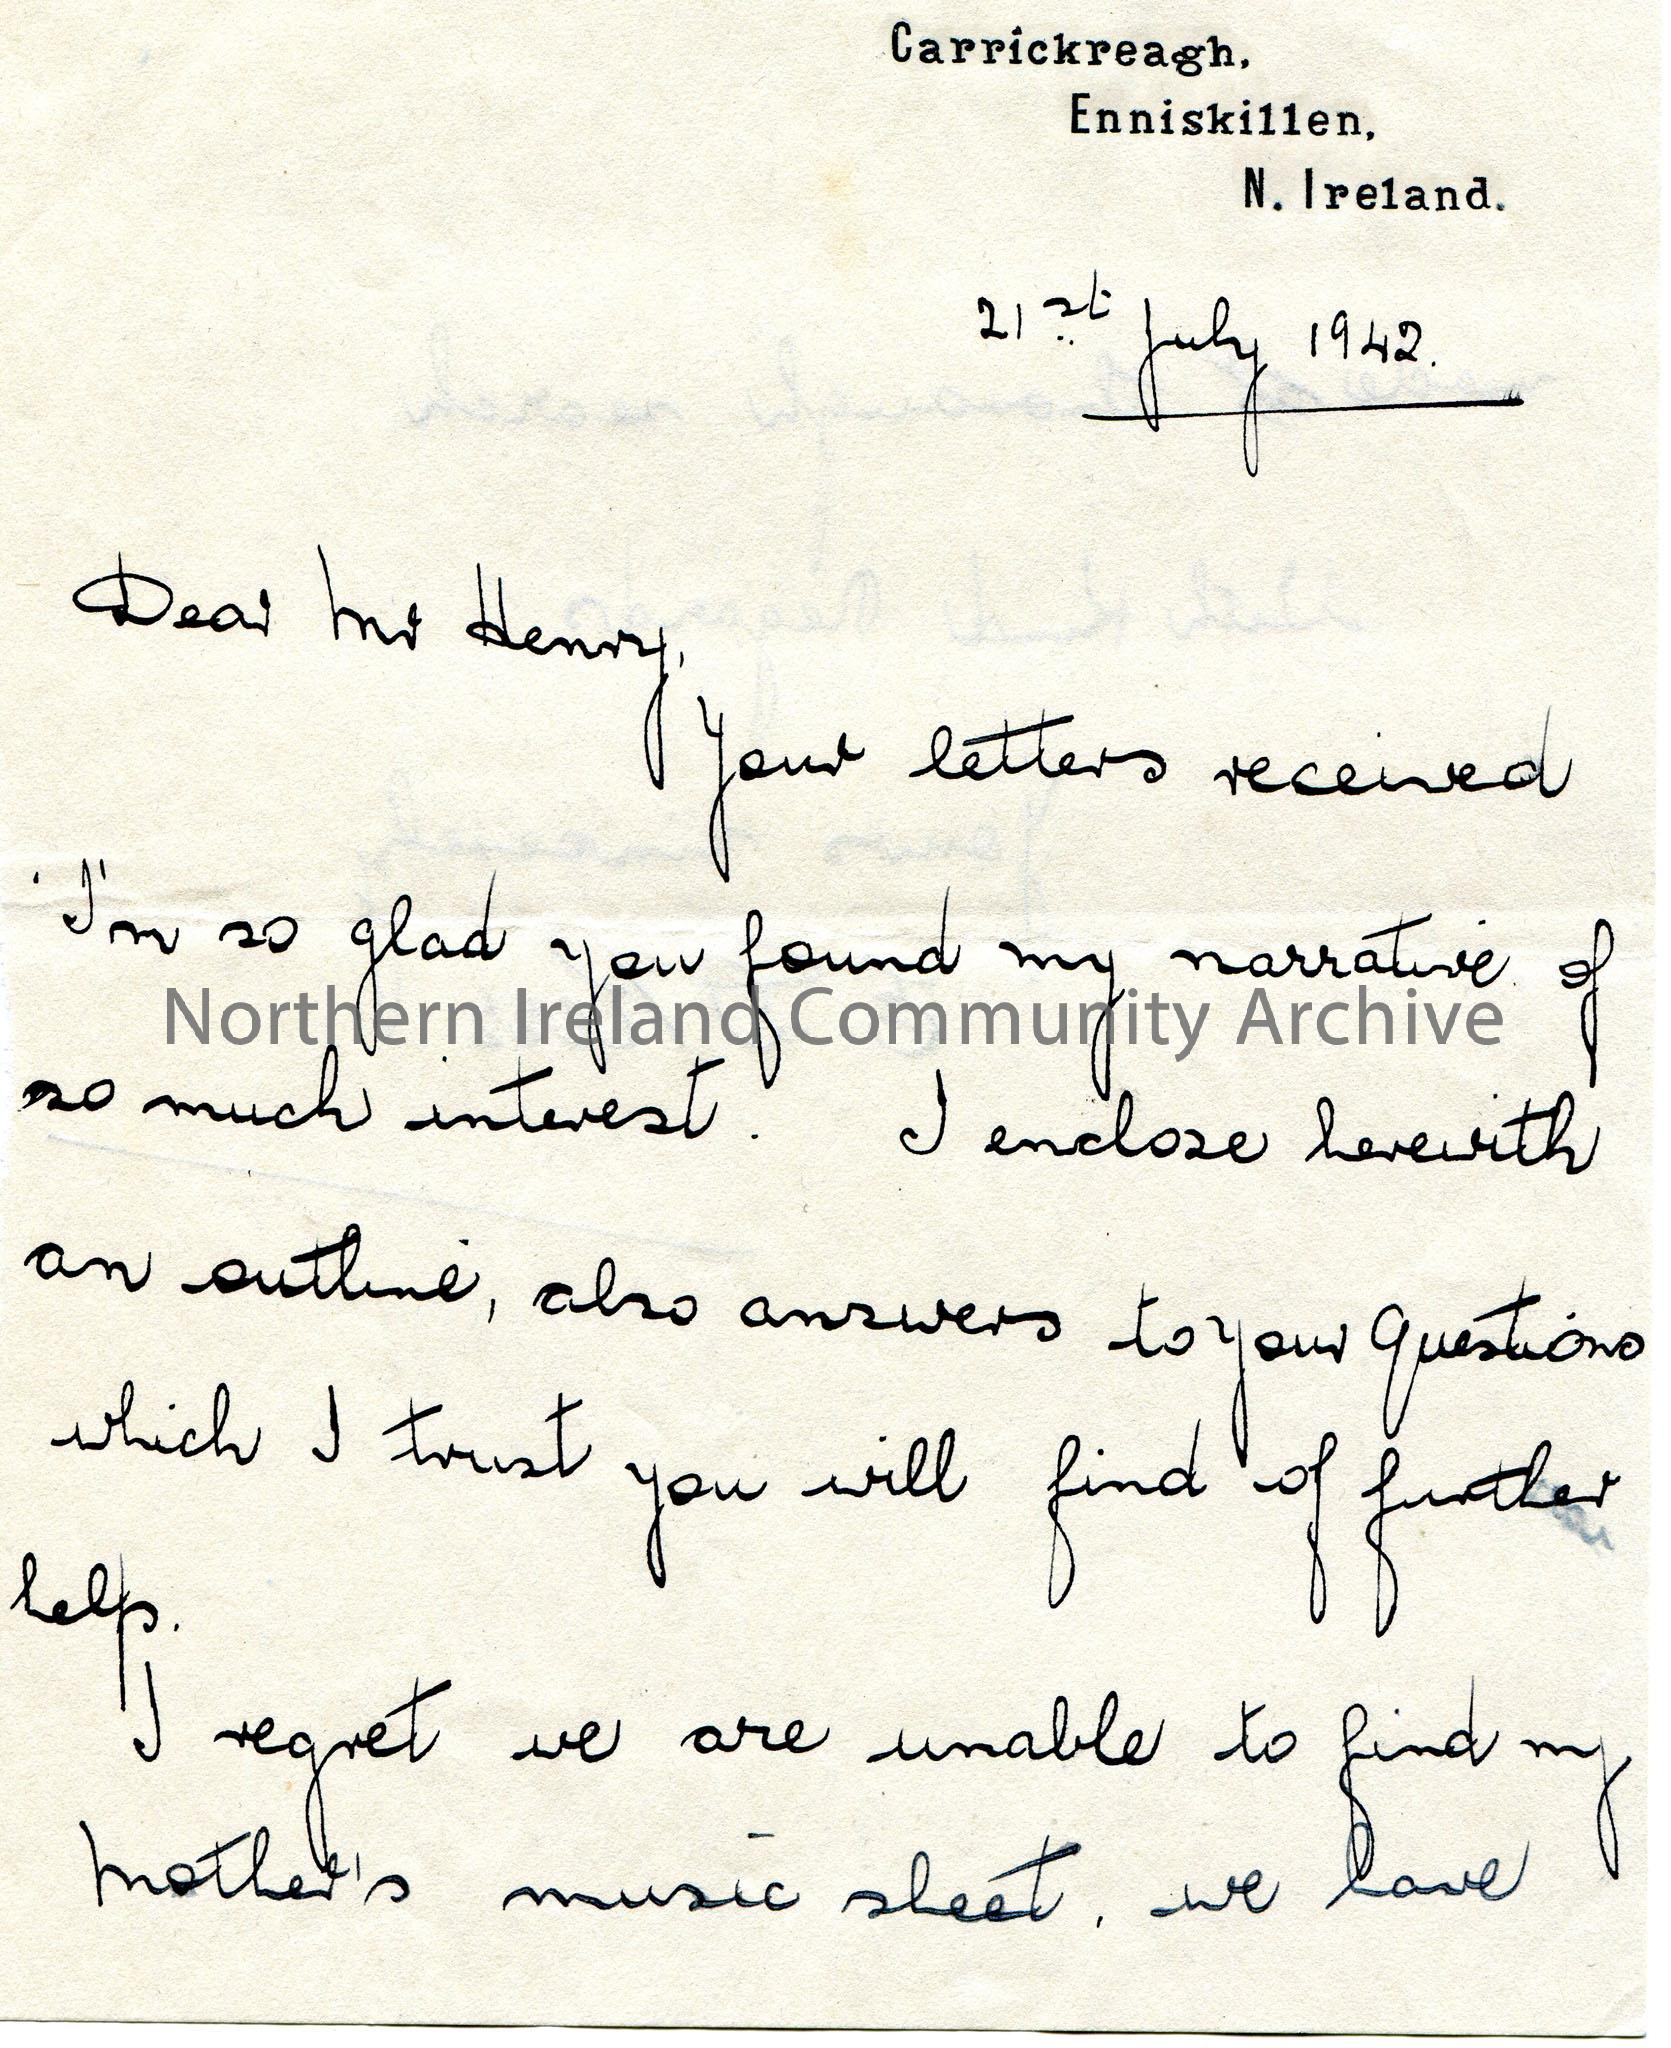 Carrickreagh,
Enniskillen,
N. Ireland.
21st July 1942.
Dear Mr Henry,
Your letters received
I'm so glad you found my narrative of
Northern Ireland Community Archive
so much interest. I enclose herewith
an outline, also answers to your Questions
which I trust you will find of further
help.
I regret we are unable to find my
Mother's music sheet, we have